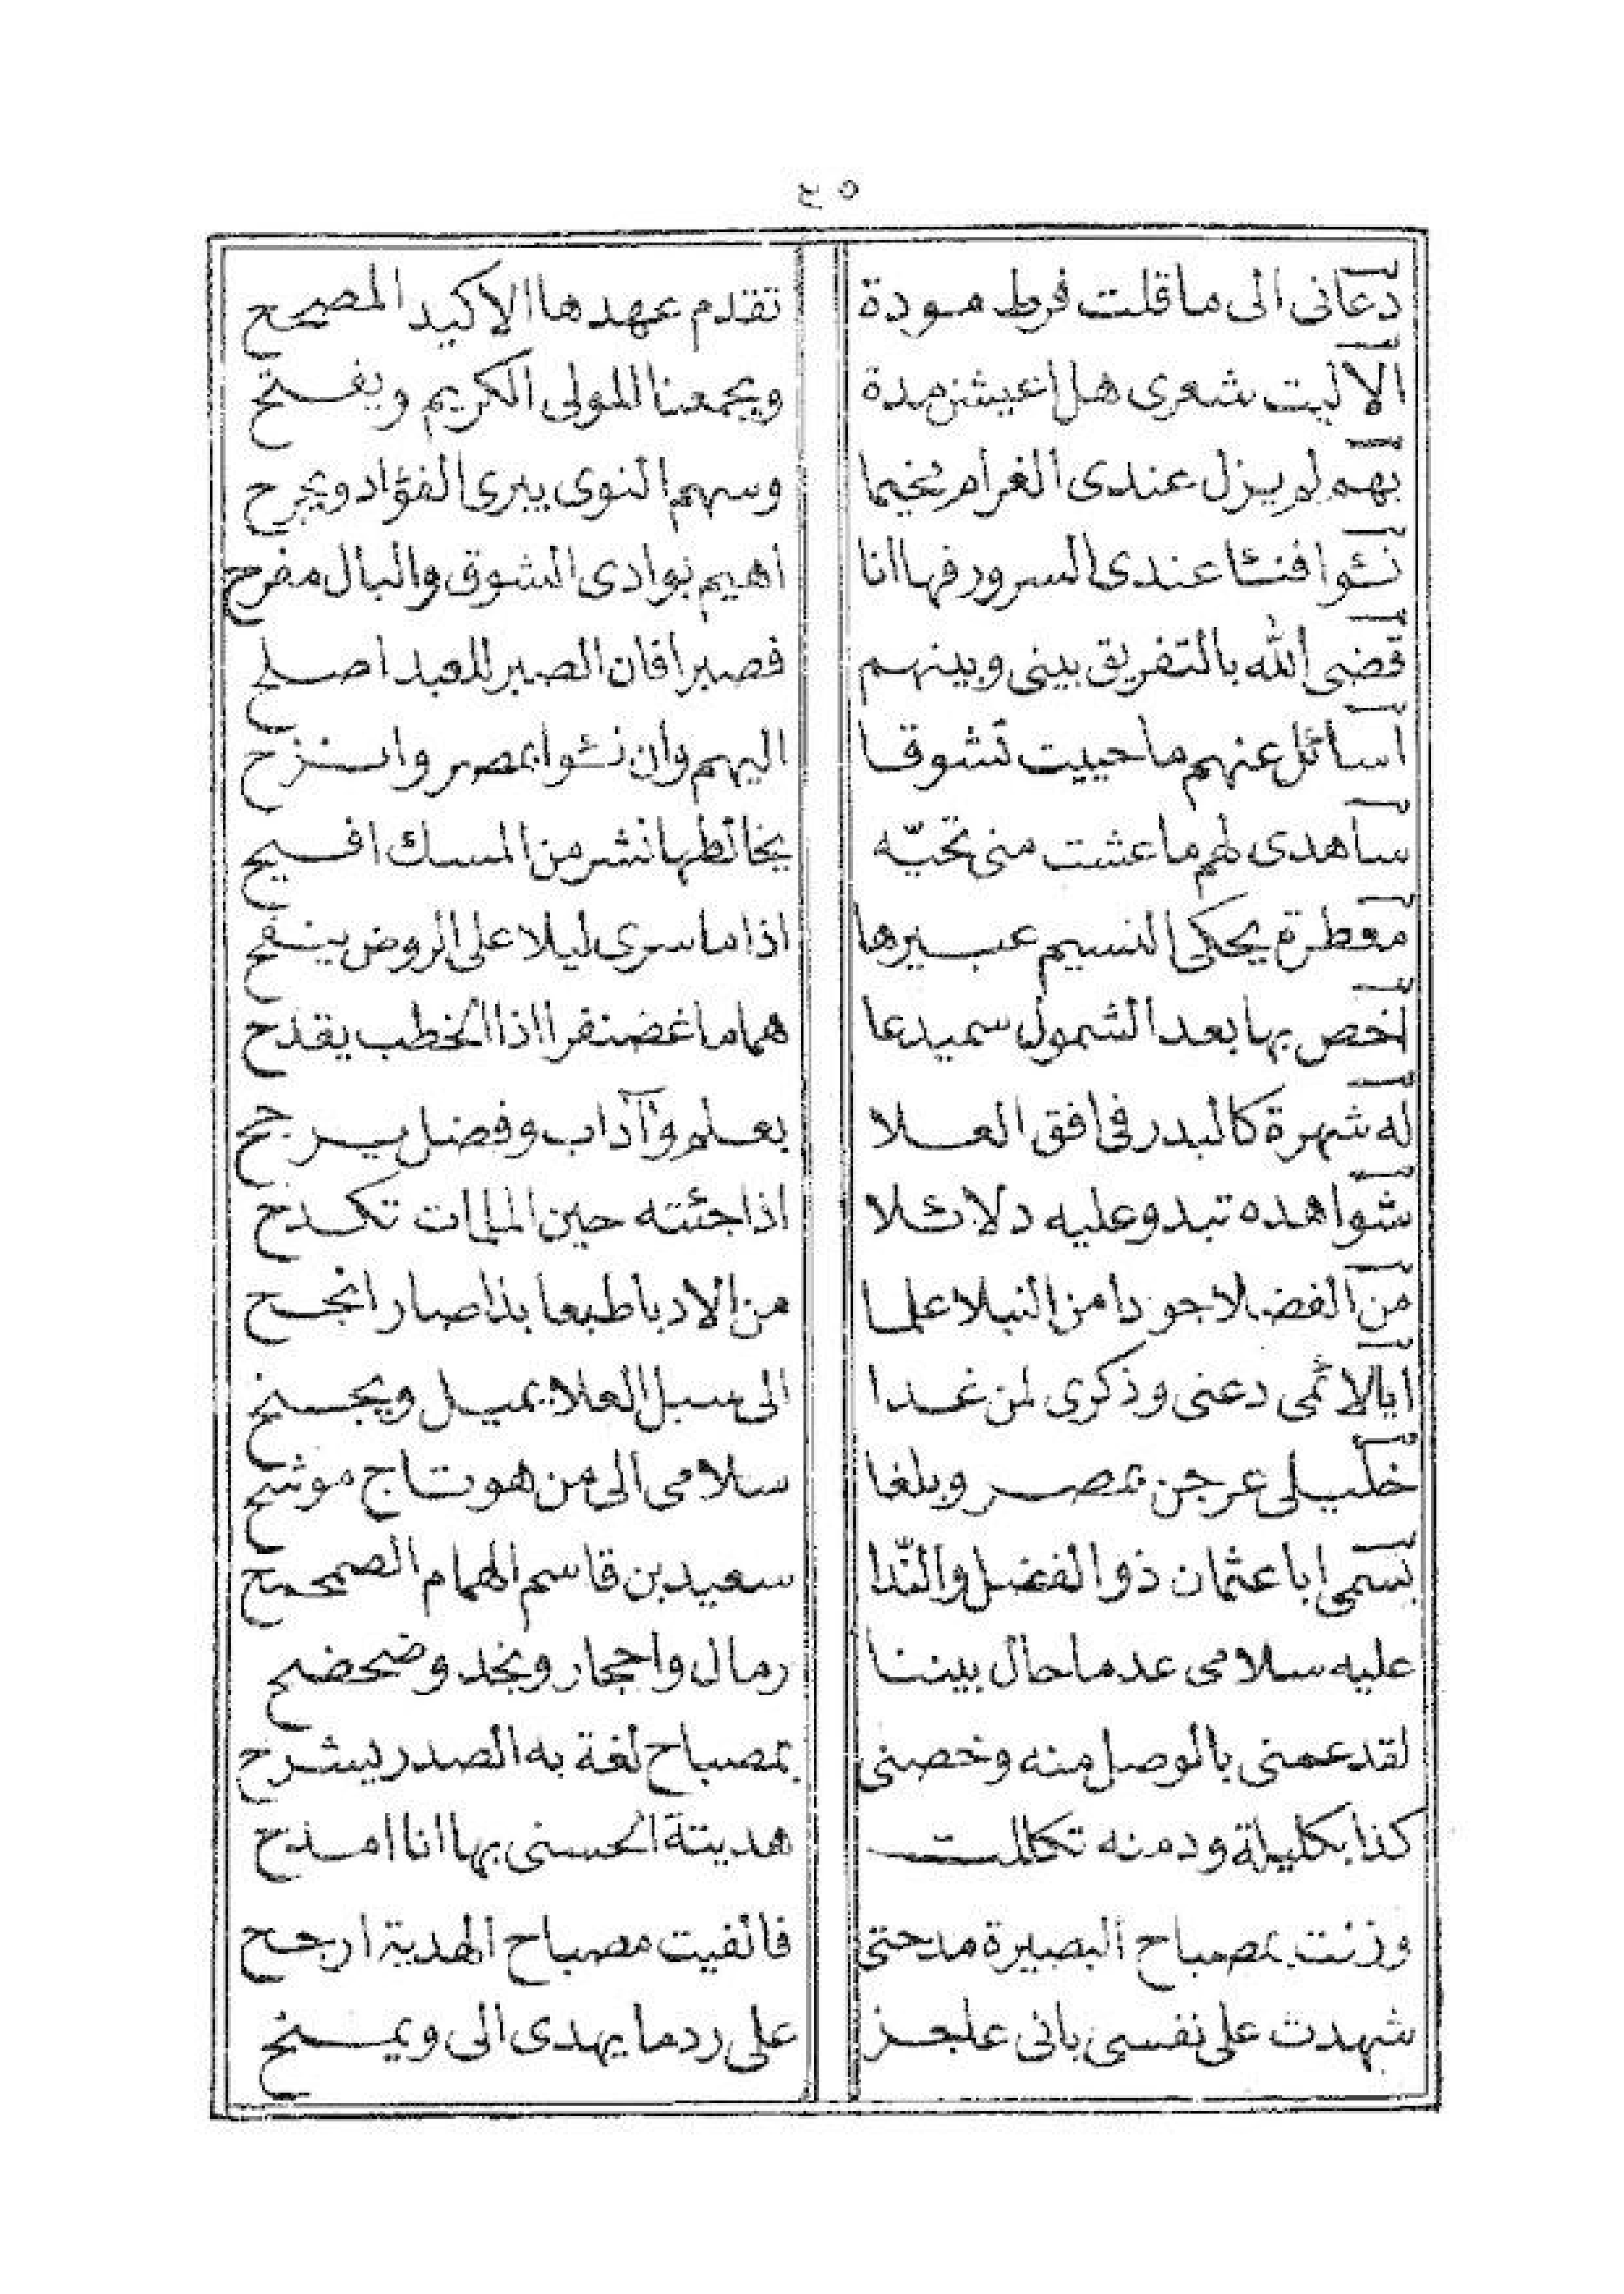 ٤٥
دعانى الى ما قلت فرط مودة تقدم عهدها الاكيد المصحح
الا ليت شعرى هل اعيشن مدة ويجمعنا المولى الكريم ويفتح
بهم لم يزل عندى الغرام مخيما وسهم النوى يبرى الفؤاد ويجرح
نئوا فنئا عندى السرور فها انا اهيم بوادى الشوق والبال مفرح
قضى الله بالتفريق بينى وبينهم فصبرا فان الصبر للعبد اصلح
اسائل عنهم ما حييت تشوقا اليهم وان نئوا بمصر وانزح
ساهدى لهم ما عشت منى تحيّه يخالطها نشر من المسك افيح
معطرة يحكى النسيم عبيرها اذا ما سرى ليلا على الروض ينفح
اخص بها بعد الشمول سميدعا هماما غضنفرا اذا الخطب يقدح
له شهرة كالبدر فى افق العلا بعلم وآداب وفضل يرجح
شواهده تبدو عليه دلائلا اذا جئته حين الملمات تكدح
من الفضلا جودا من النبلا علما من الادبا طبعا بذا صار انجح
ايا لائمى دعنى وذكرى لمن غدا الى سبل العلا يميل ويجنح
خليلى عرجن بمصر وبلغا سلامى الى من هو بتاج موشح
يسمى ابا عثمان ذو الفضل والنّدا سعيد بن قاسم الهمام الصمحمح
عليه سلامى عد ما حال بيننا رمال واحجار ونجد وضحضح
لقد عمنى بالوصل منه وخصنى بمصباح لغة به الصدر يشرح
كذا بكليلة ودمنه تكللت هديتة الحسنى بها انا امدح
وزنت بمصباح البصيرة مدحتى فالفيت مصباح الهدية ارجح
شهدت على نفسى بانى عاجز على رد ما يهدى الى ويمنح